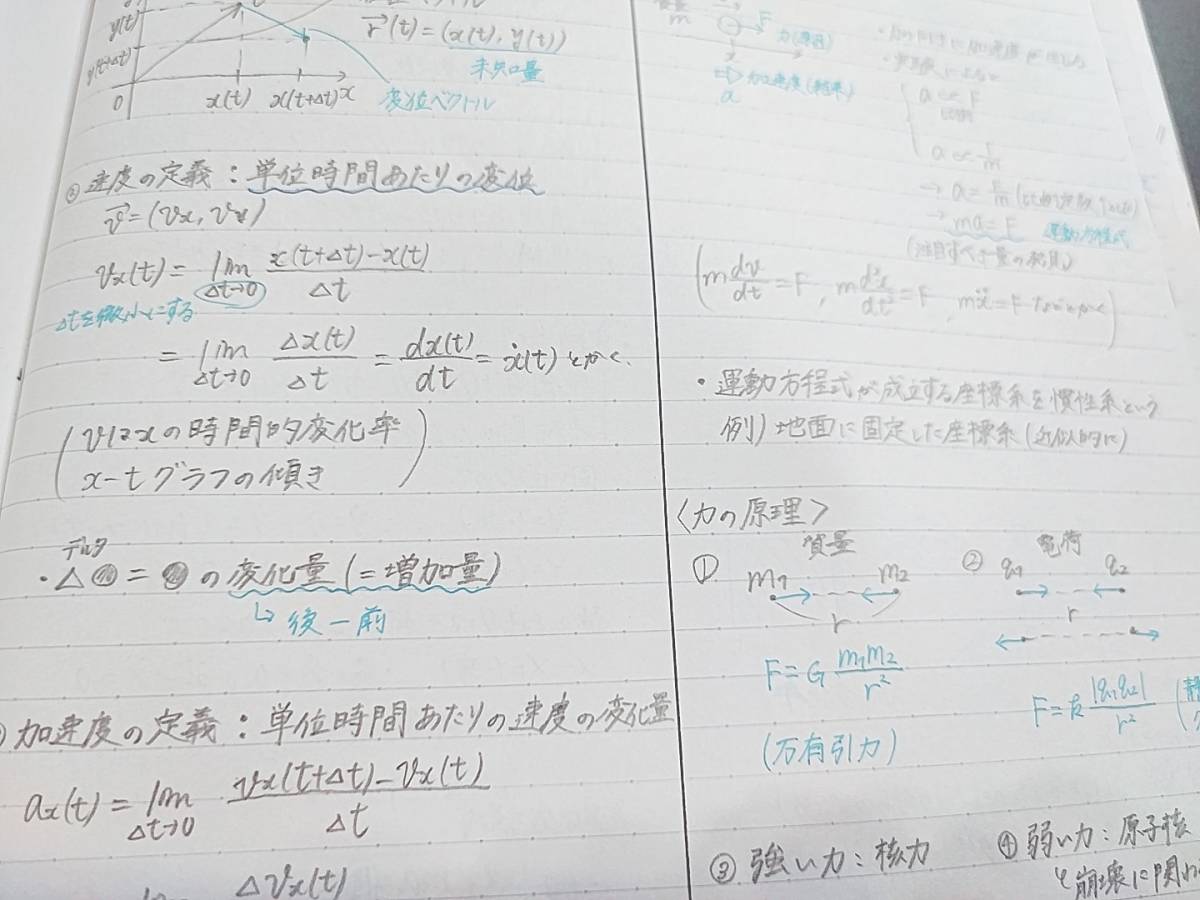 y(t)
y(t+Δt)
0
x(t) x(t+Δt) x
r(t)=(x(t), y(t))
未知量
変位ベクトル
速度の定義：単位時間あたりの変位
v=(vx, vy)
vx(t)= lim Δt→0 x(t+Δt)-x(t) / Δt
Δtを微小にする
= lim Δt→0 Δx(t) / Δt = dx(t) / dt = ẋ(t) とかく.
(vはxの時間的変化率
x-tグラフの傾き)
デルタ
・△ = の変化量(=増加量)
↳ 後-前
加速度の定義：単位時間あたりの速度の変化量
ax(t)= lim Δt→0 vx(t+Δt)-vx(t) / Δt
Δvx(t)
質量
m
F
力(原因)
⇒ 加速度(結果)
a
a ∝ F
a ∝ 1/m
→ a = F/m
→ ma=F 運動方程式
(注目すべき量の)
(m dv/dt =F, m d²x/dt² =F, mẍ=F などとかく)
・運動方程式が成立する座標系を慣性系という
例) 地面に固定した座標系(近似的に)
〈力の原理〉
① 質量
m1 m2
r
F=G m1m2 / r²
(万有引力)
② 電荷
q1 q2
r
F=k |q1q2| / r² (静
③ 強い力：核力
④ 弱い力：原子核
崩壊に関わ